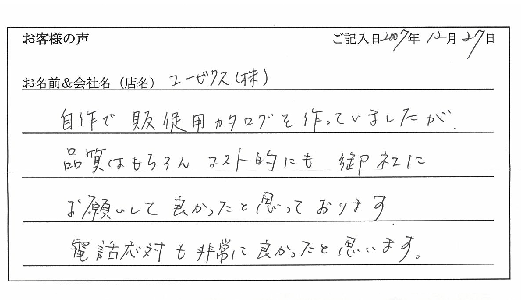 お客様の声 ご記入日2007年 12月 27日
お名前&会社名（店名） ユービクス(株)
自作で 販促用カタログを作っていましたが、
品質はもちろん コスト的にも 御社に
お願いして 良かったと思っております
電話応対も非常に良かったと思います。